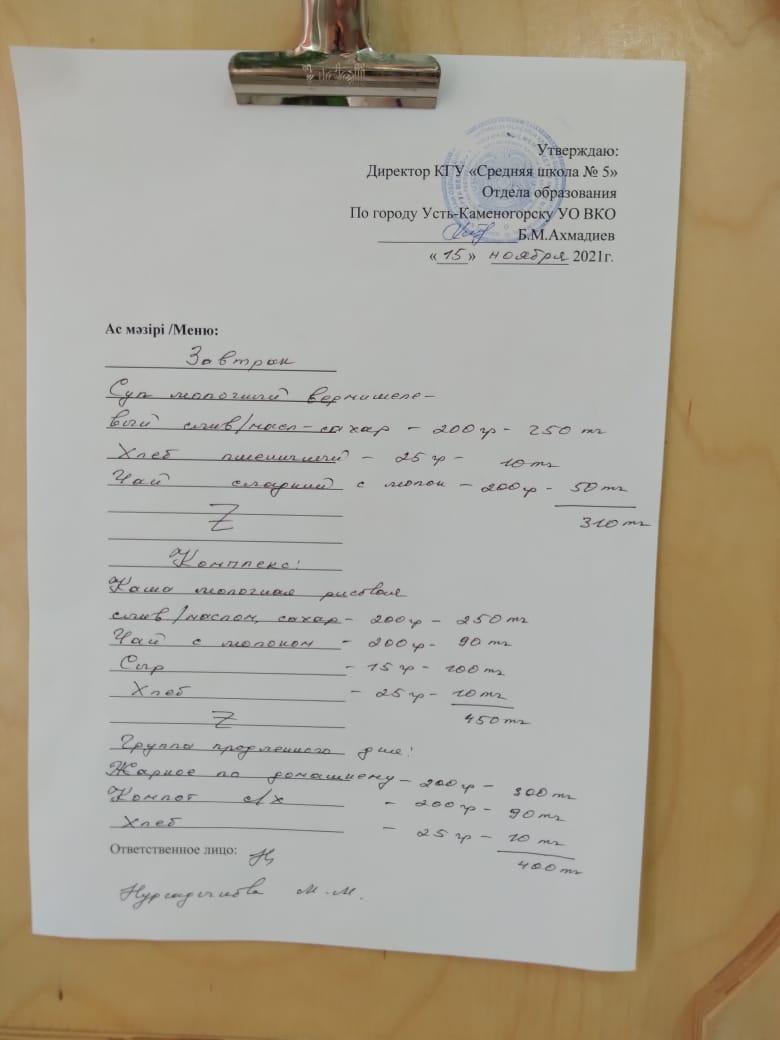 Утверждаю:
Директор КГУ «Средняя школа № 5»
Отдела образования
По городу Усть-Каменогорску УО ВКО
Б.М.Ахмадиев
«15» ноября 2021г.
Ас мәзірі /Меню:
Завтрак
Суп молочный вермишеле-
вый слив/масл-сахар - 200гр - 250 тг
Хлеб пшеничный - 25 гр - 10 тг
Чай сладкий с молок - 200гр - 50 тг
310 тг
Z
Комплекс:
Каша молочная рисовая
слив/маслом, сахар - 200гр - 250 тг
Чай с молоком - 200гр - 90 тг
Сыр - 15 гр - 100 тг
Хлеб - 25 гр - 10 тг
450 тг
Z
Группа продленного дня:
Жаркое по домашнему - 200гр - 300 тг
Компот с/х - 200гр - 90 тг
Хлеб - 25 гр - 10 тг
400 тг
Ответственное лицо:
М.М.